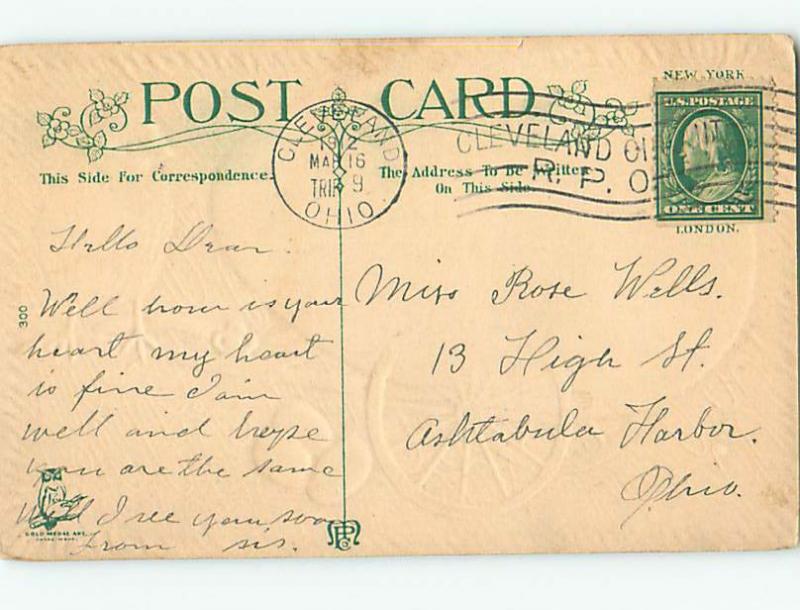 POST CARD
NEW YORK
U.S. POSTAGE
ONE CENT
LONDON.
CLEVELAND
1912
MAR 16
TRIP 9
OHIO
CLEVELAND CIRCUIT
R. P. O.
This Side For Correspondence.
The Address To Be Written
On This Side.
300
Hello Dear
Well how is your
heart my heart
is fine I am
well and hope
you are the same
Well I see you soon
From sis.
Miss Rose Wells.
13 High St.
Ashtabula Harbor.
Ohio.
GOLD MEDAL ART.